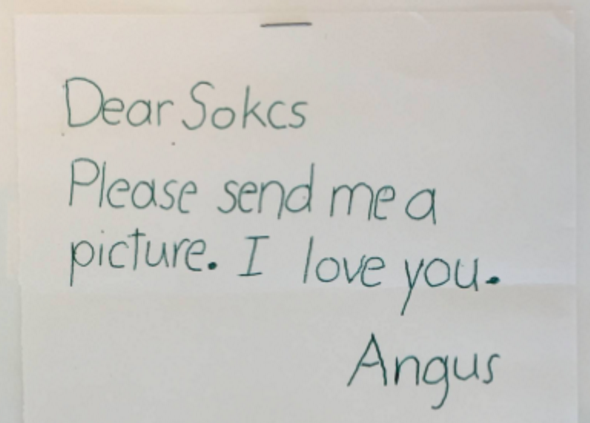 Dear Sokcs
Please send me a
picture. I love you.
Angus